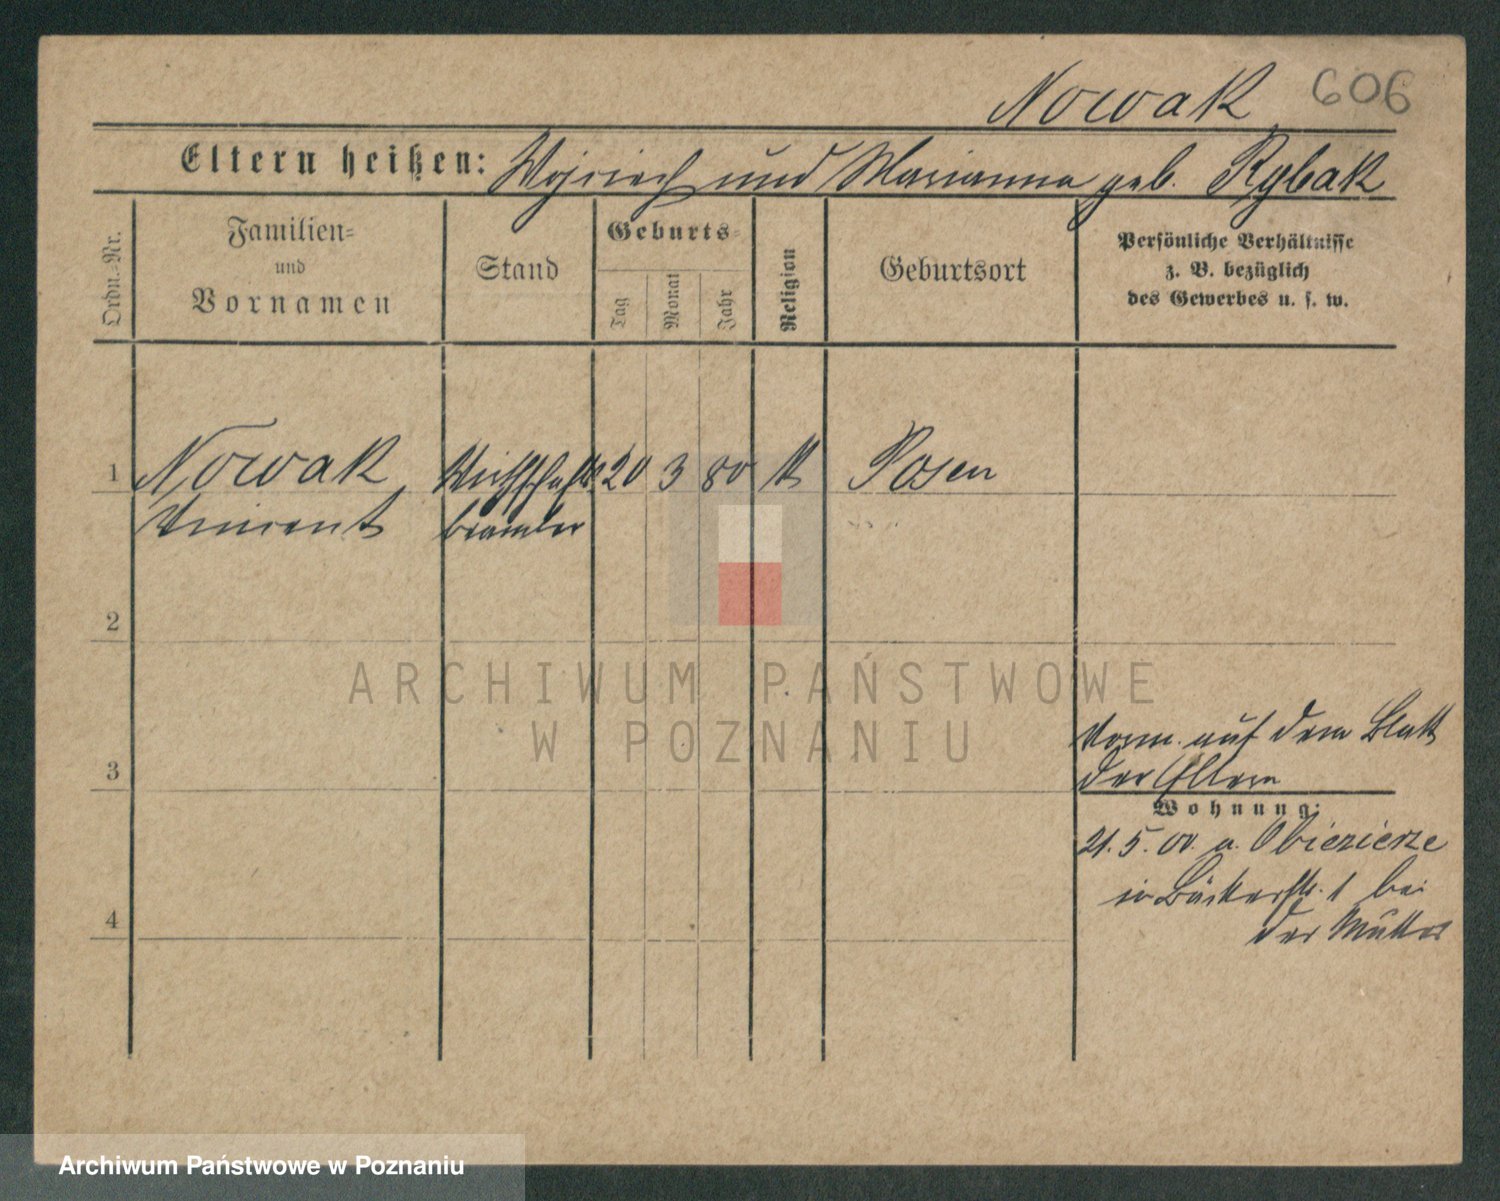 Nowak 606
Eltern heißen: Wojciech und Marianna geb. Rybak
Ordn.-Nr.
Familien-
und
Vornamen
Stand
Geburts-
Tag
Monat
Jahr
Religion
Geburtsort
Persönliche Verhältnisse
z. B. bezüglich
des Gewerbes u. s. w.
1 Nowak Wirthschafts 20 3 80 k Posen
Vincent beamter
2
ARCHIWUM PAŃSTWOWE
W POZNANIU
3
Vorm. auf dem Blatt
der Eltern
Wohnung:
21. 5. 00. a. Obiezierze
in Bäckerstr. 1 bei
der Mutter
4
Archiwum Państwowe w Poznaniu